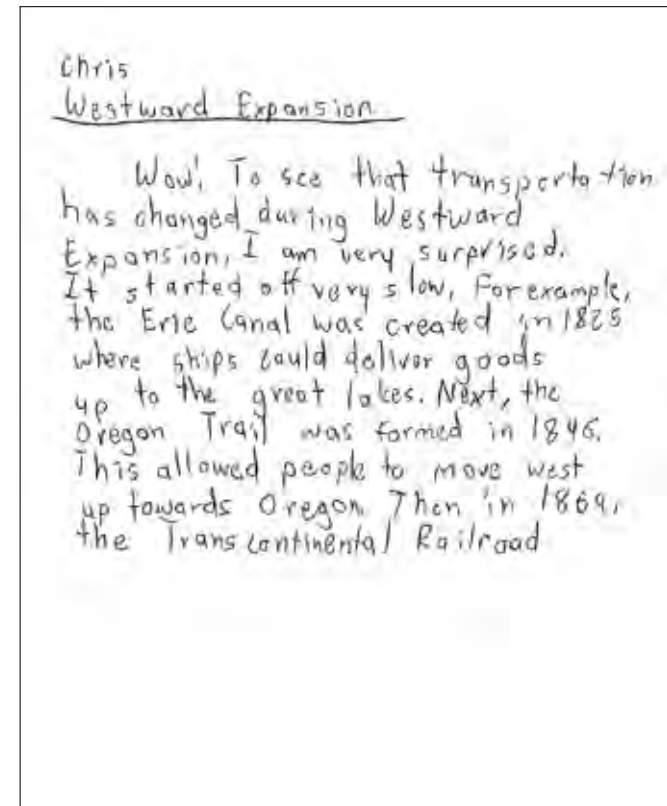 Chris
Westward Expansion
Wow! To see that transportation
has changed during Westward
Expansion, I am very surprised.
It started off very slow. For example,
the Erie Canal was created in 1825
where ships could deliver goods
up to the great lakes. Next, the
Oregon Trail was formed in 1846.
This allowed people to move west
up towards Oregon. Then in 1869,
the Transcontinental Railroad